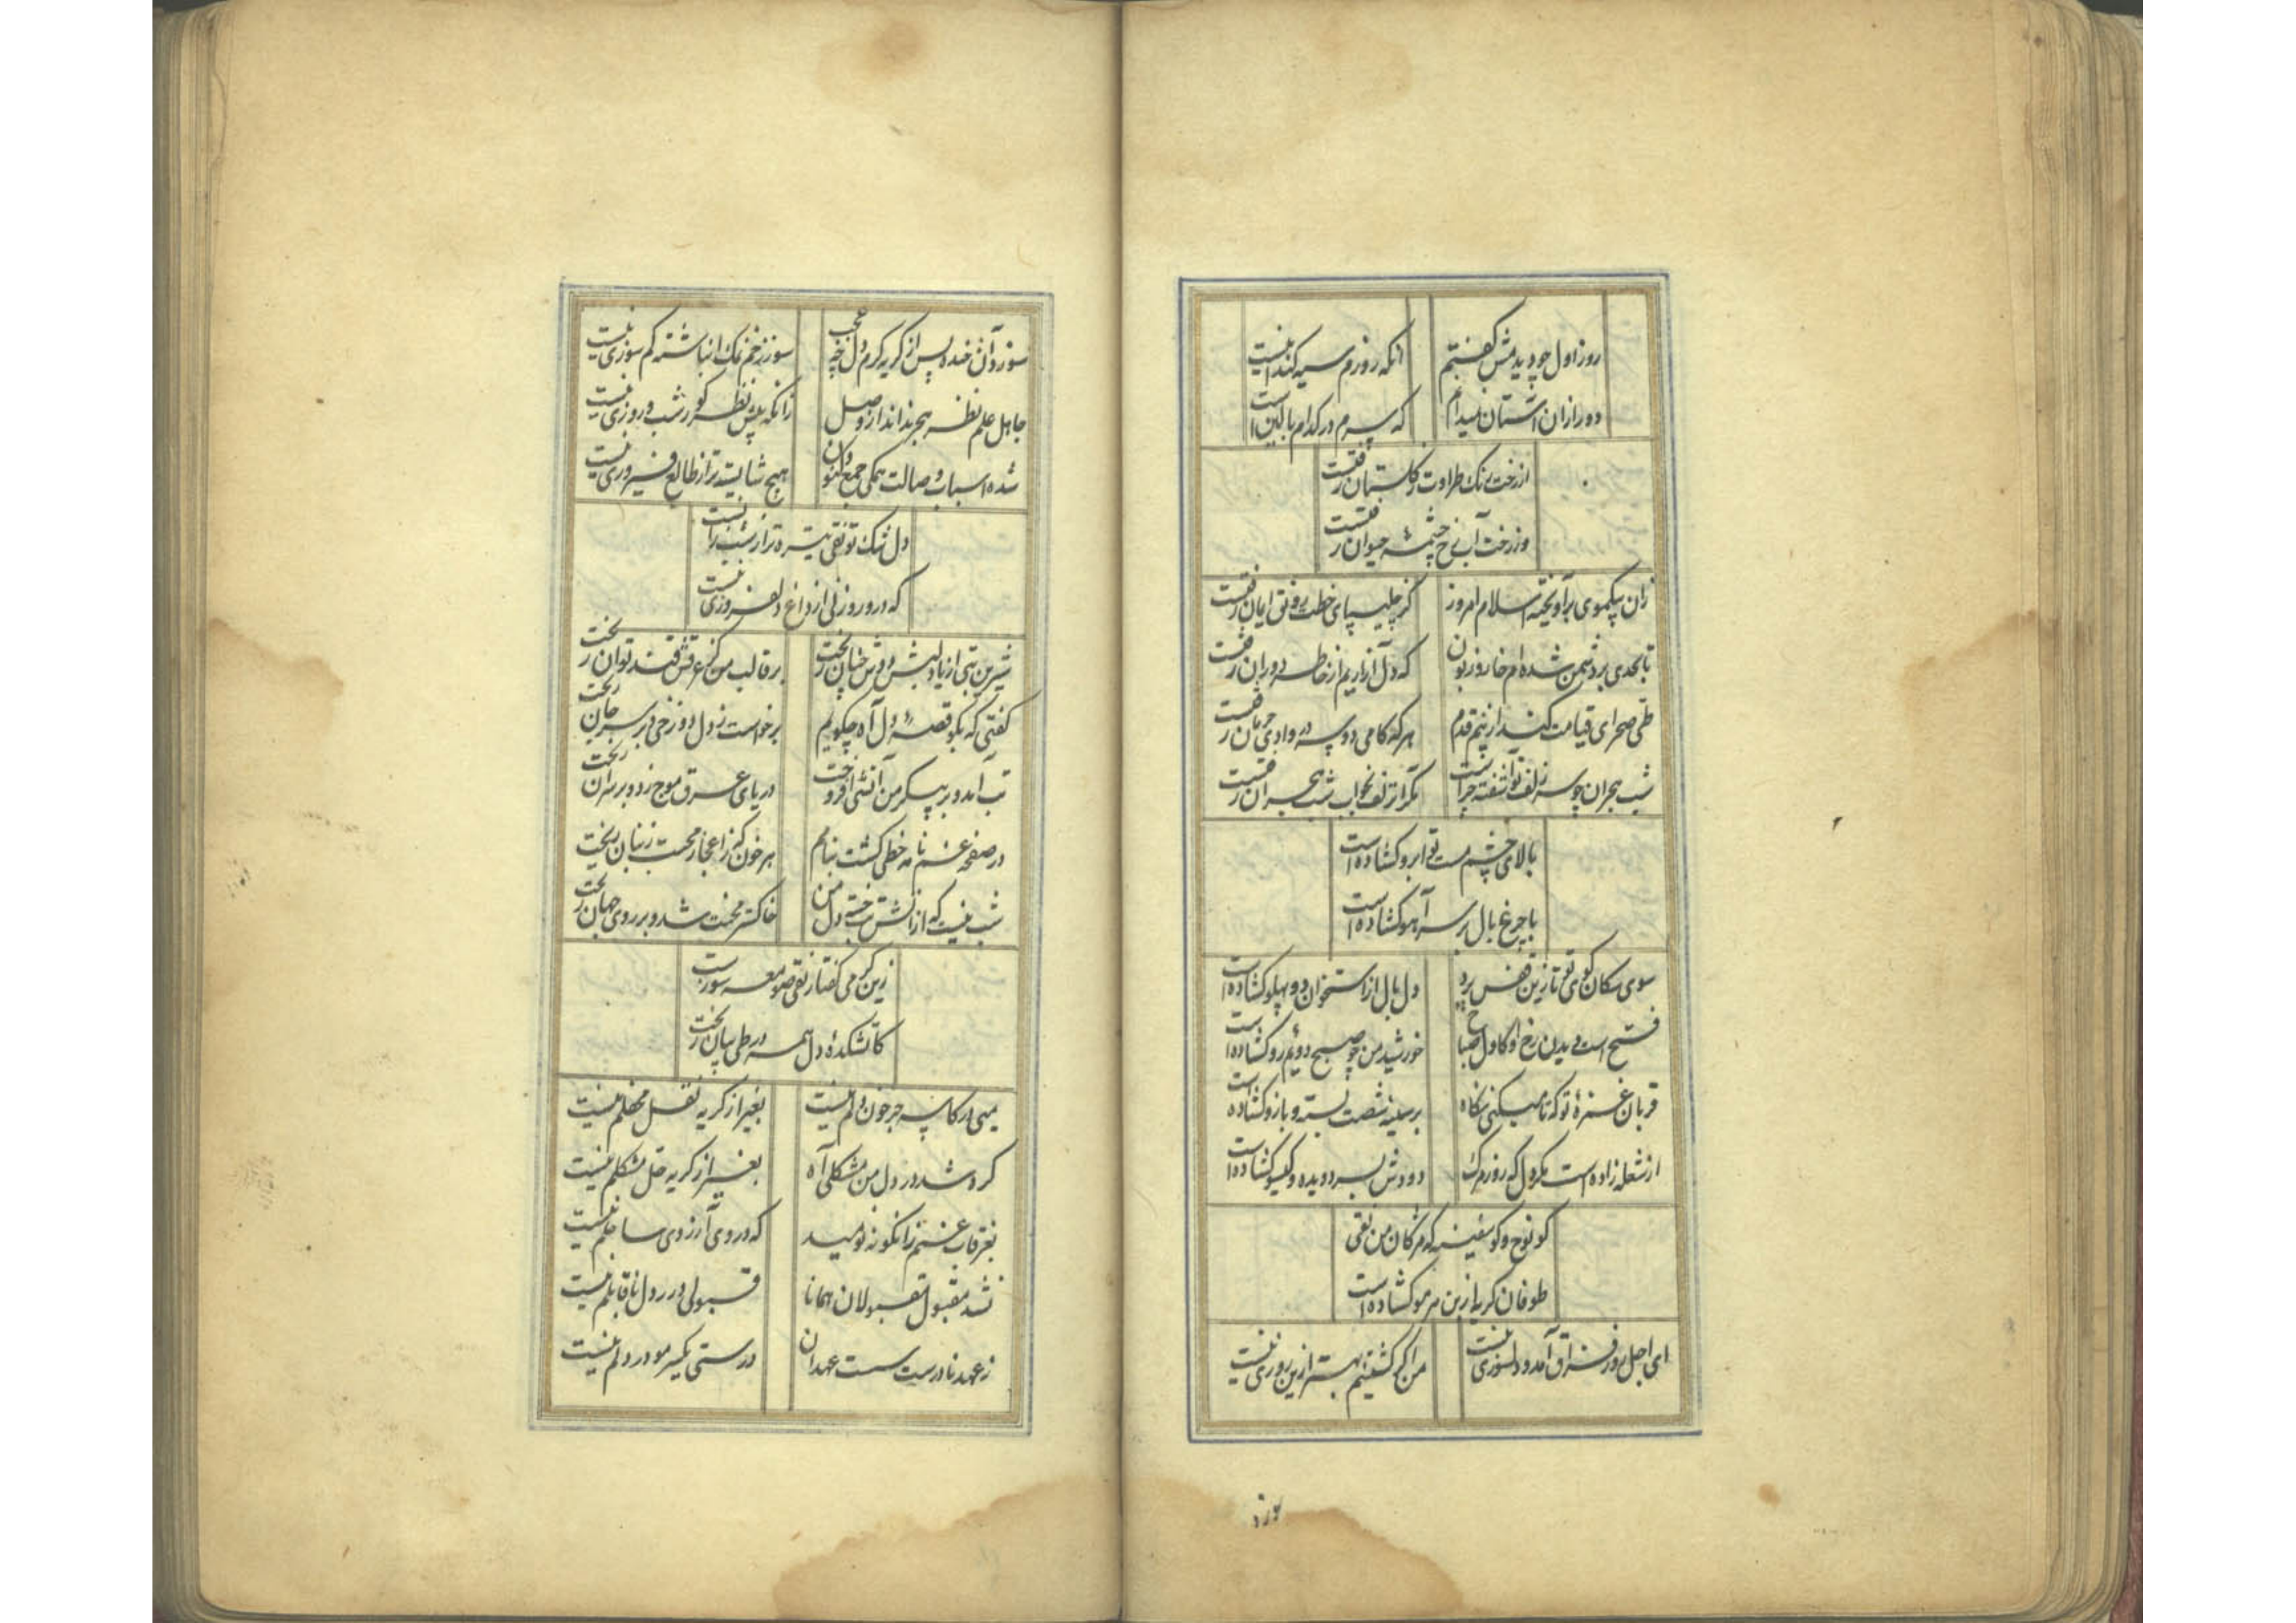 روز اول چو دیدمش گفتم
آنکه روزم سیه کند اینست
دور ازان آستان نمیدانم
که سرم در کدام بالین است
از رخت رنگ طراوت ز گلستان رفتست
وز رخت آب رخ چشمهٔ حیوان رفتست
زان یکموی برآویخته اسلام امروز
کز چلیپای خطت رونق ایمان رفتست
تا بحدی بر دشمن شده‌ام خار و زبون
که دل آزاریم از خاطر دوران رفتست
طی صحرای قیامت کند از نیم قدم
هر که کامی دو سه در وادی حرمان رفتست
شب هجران چو سر زلف تو آشفته چراست
مگر از زلف تو خواب شب هجران رفتست
بالای چشم مست تو ابرو گشاده است
یا چرغ بال بر سر آهو گشاده است
سوی سکان کوی تو تا زین قفس پرد
دل بال از استخوان دو پهلو گشاده است
فتح است دیدن رخ او کاول صباح
خورشید من چو صبح دوم رو گشاده است
قربان غمزهٔ تو که تا میکنی نگاه
بر سینه شصت بسته و بازو گشاده است
از شعله زاده است مگر دل که روز مرگ
دودش بسر دویده و گیسو گشاده است
کو نوح و کو سفینه که مژگان من نقی
طوفان گریه از بن هر مو گشاده است
ای اجل روز فراق آمد و دلسوزی نیست
من اگر کشتنیم بهتر ازین روزی نیست
سوز
سوز دل آن خنده پس از گریه گرم دل چه عجب
سوز زخم نمک انباشته کم سوزی نیست
جاهل علم نظر هجر نداند از وصل
زانکه پیش نظر کور شب و روزی نیست
شده اسباب وصالت همگی جمع و کنون
هیچ شایسته‌تر از طالع فیروزی نیست
دل تنک تو نقی تیره‌تر از شب زانست
که درو روزنی از داغ دلفروزی نیست
شیرین تبی از یاد لبش دوش چنان ریخت
بر قالب من کز عرقش قند توان ریخت
گفتی که بگو قصهٔ دل آه چگویم
برخواست ز دل دوزخی و بر سر جان ریخت
تب آمد و بر پیکر من آتشی افروخت
دریای عرق موج زد و بر سر آن ریخت
در صفحه غم نامه خطی گشت بنامم
هر خون که ز اعجاز محبت ز بنان ریخت
شب نیست که از آتش تب سوخته دل من
خاکستر محنت شد و بر روی جهان ریخت
زین گرمی گفتار نقی صومعه سوزست
کاتشکدهٔ دل همه در طی بیان ریخت
میی در کاسه جز خون دلم نیست
بغیر از گریه نقل محفلم نیست
گره شد در دل من مشکلی آه
بغیر از گریه حل مشکلم نیست
بغرقاب غمم زانگونه نومید
که در وی آرزوی ساحلم نیست
نشد مقبول مقبولان همانا
قبولی در دل ناقابلم نیست
ز عهد نادرست سست عهدان
درستی یکسر مو در دلم نیست